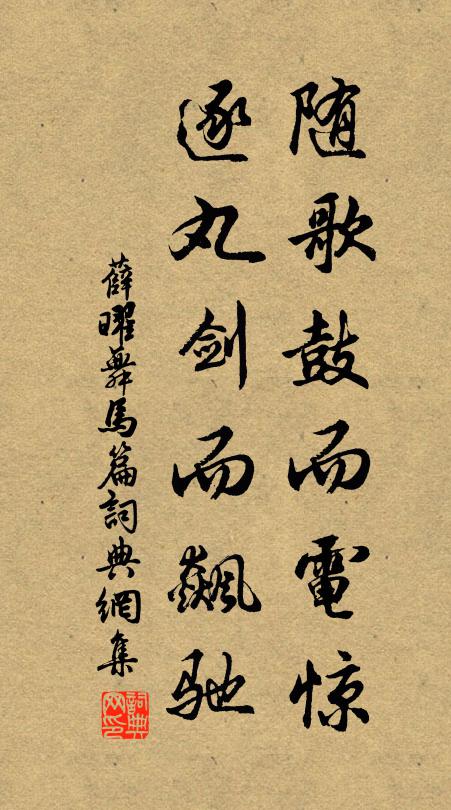 随歌鼓而電惊
逐丸剑而飆驰
薛曜舞馬篇詞典網集
詞典網印